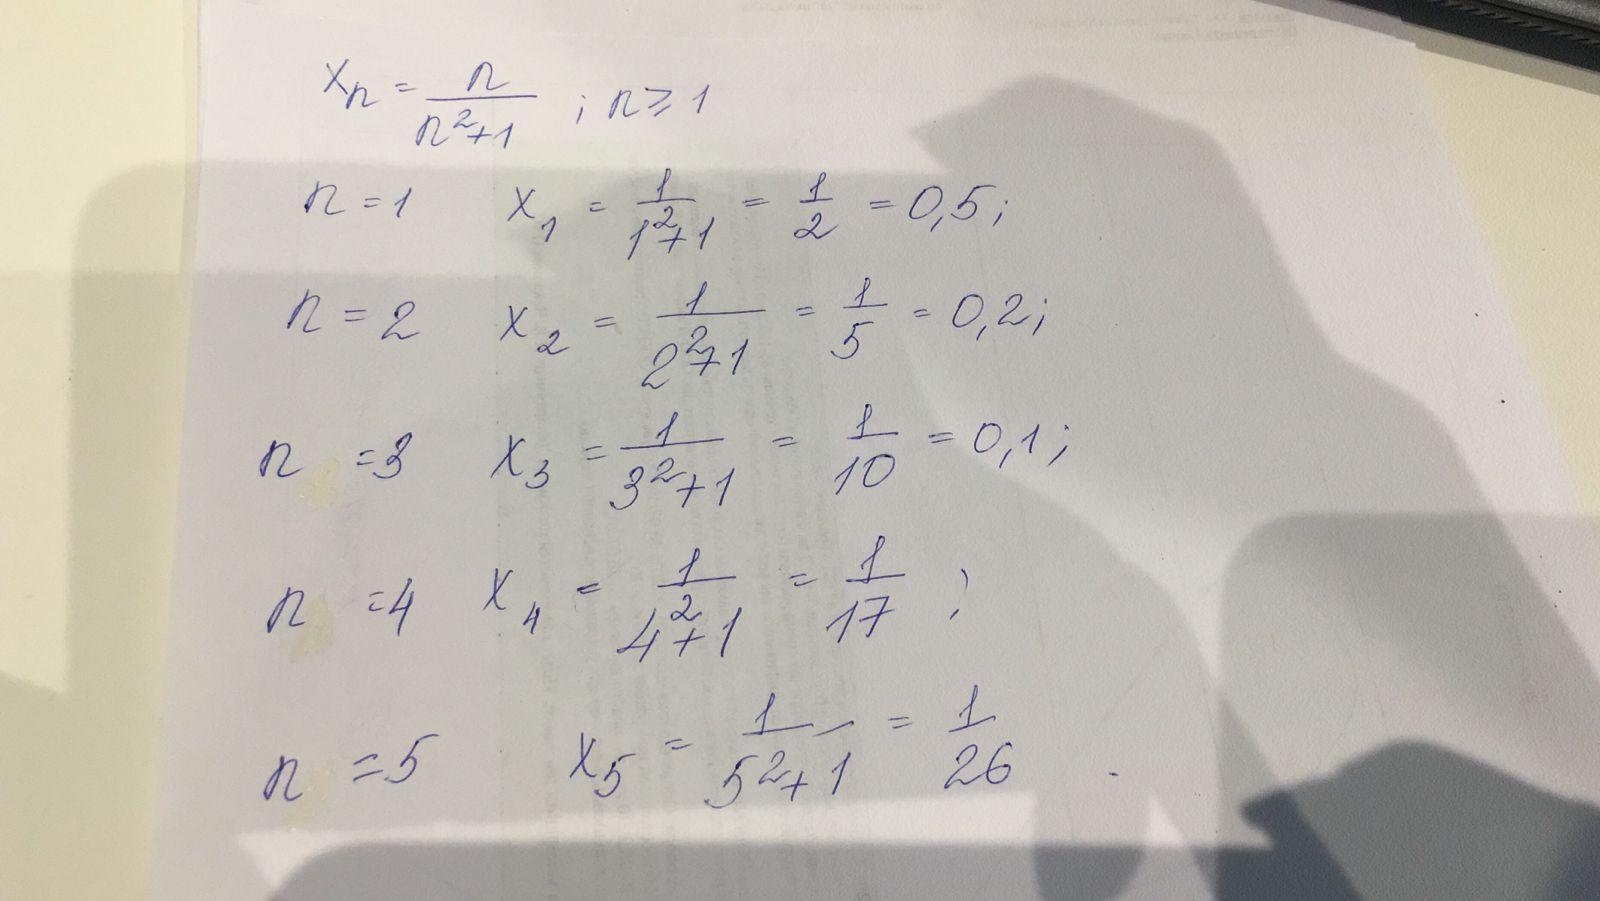 xₙ = n/(n²+1) ; n ≥ 1
n = 1 x₁ = 1/(1²+1) = 1/2 = 0,5;
n = 2 x₂ = 1/(2²+1) = 1/5 = 0,2;
n = 3 x₃ = 1/(3²+1) = 1/10 = 0,1;
n = 4 x₄ = 1/(4²+1) = 1/17 ;
n = 5 x₅ = 1/(5²+1) = 1/26 .